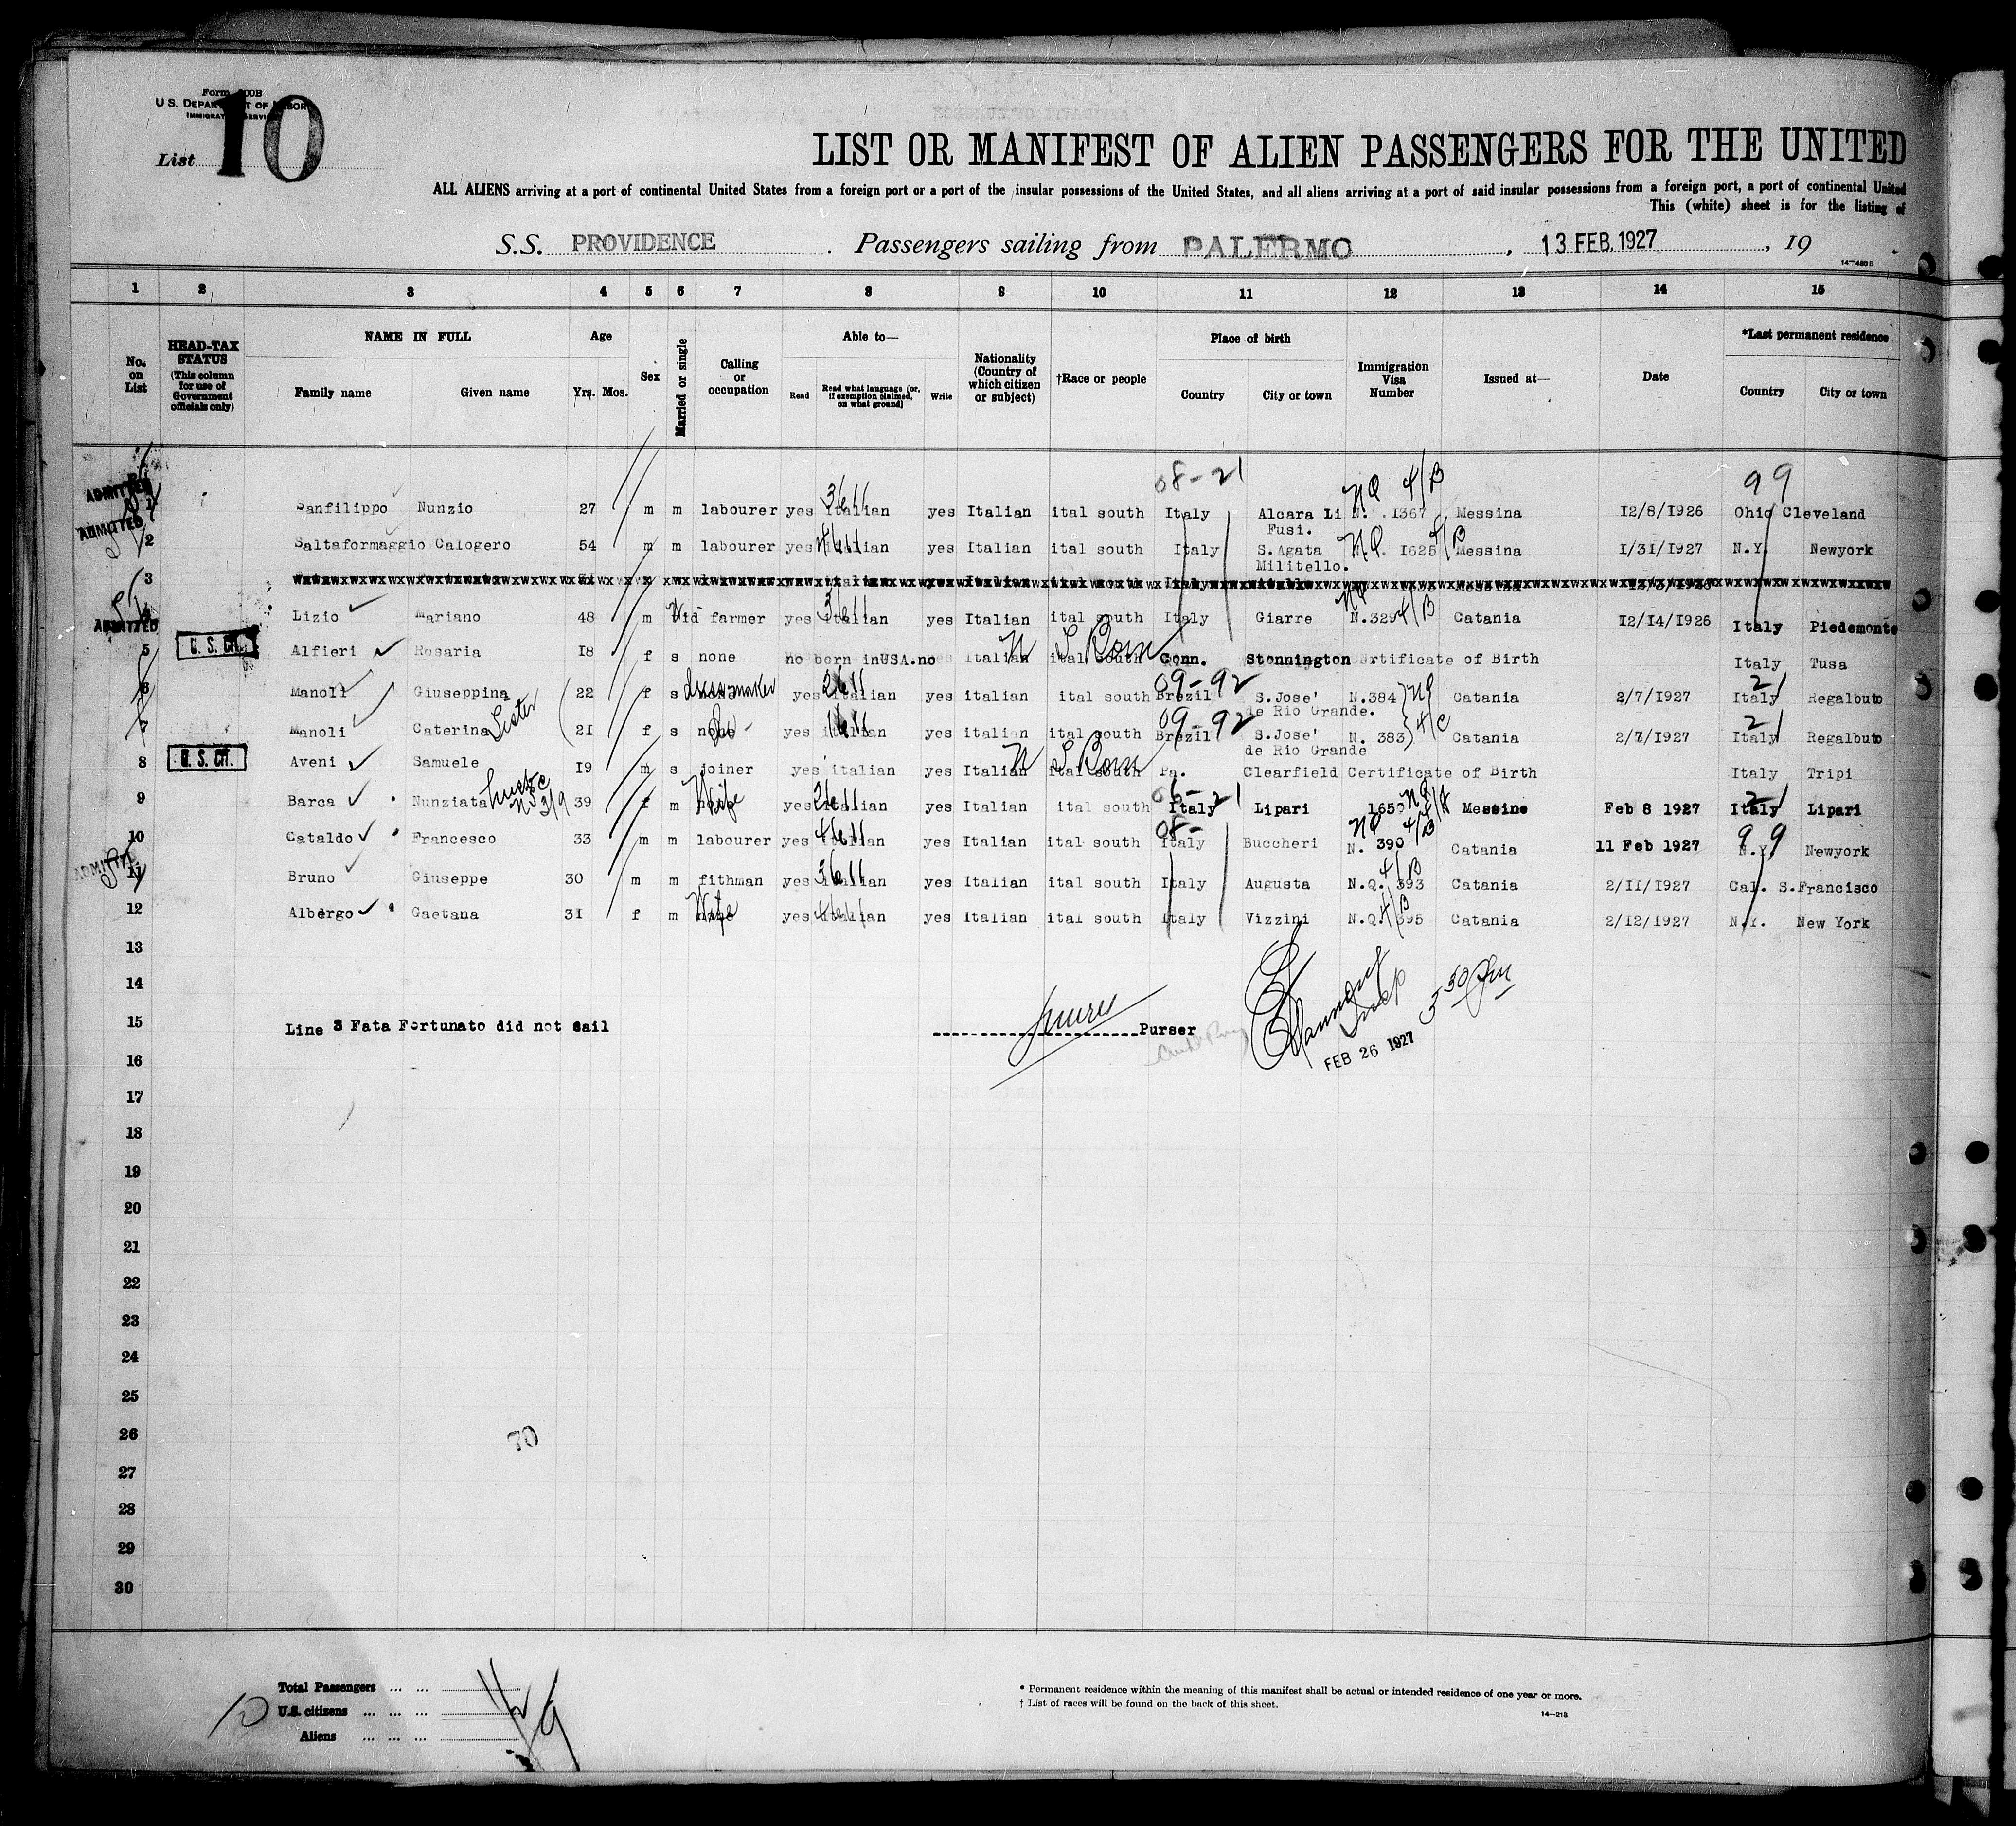 Form 500B
U. S. DEPARTMENT OF LABOR
IMMIGRATION SERVICE
List 10
LIST OR MANIFEST OF ALIEN PASSENGERS FOR THE UNITED
ALL ALIENS arriving at a port of continental United States from a foreign port or a port of the insular possessions of the United States, and all aliens arriving at a port of said insular possessions from a foreign port, a port of continental United
This (white) sheet is for the listing of
S.S. PROVIDENCE . Passengers sailing from PALERMO , 13 FEB. 1927 , 19
14—480 B
1 2 3 4 5 6 7 8 9 10 11 12 13 14 15
No. on List HEAD-TAX STATUS (This column for use of Government officials only) NAME IN FULL Family name Given name Age Yrs. Mos. Sex Married or single Calling or occupation Able to— Read Read what language (or, if exemption claimed, on what ground) Write Nationality (Country of which citizen or subject) †Race or people Place of birth Country City or town Immigration Visa Number Issued at— Date *Last permanent residence Country City or town
08-21 NQ 4/B 99
ADMITTED 1 Sanfilippo Nunzio 27 m m labourer yes italian yes Italian ital south Italy Alcara Li Fusi. N. 1367 Messina 12/8/1926 Ohio Cleveland
ADMITTED 2 Saltaformaggio Calogero 54 m m labourer yes italian yes Italian ital south Italy S. Agata Militello. N.Q. 1625 4/B Messina 1/31/1927 N.Y. Newyork
3
ADMITTED 4 Lizio Mariano 48 m Wid farmer yes italian yes Italian ital south Italy Giarre N.329 4/B Catania 12/14/1926 Italy Piedemonte
5 U. S. CIT. Alfieri Rosaria 18 f s none no born inUSA. no Italian ital south Conn. Stonnington Certificate of Birth Italy Tusa
6 Manoli Giuseppina 22 f s dressmaker yes italian yes italian ital south 09-92 Brezil S. Jose' de Rio Grande. N.384 NQ Catania 2/7/1927 21 Italy Regalbuto
7 Manoli Caterina Sister 21 f s none yes italian yes italian ital south 09-92 Brezil S. Jose' de Rio Grande N. 383 4/C Catania 2/7/1927 21 Italy Regalbuto
8 U. S. CIT. Aveni Samuele 19 m s joiner yes italian yes Italian ital south Pa. Clearfield Certificate of Birth Italy Tripi
9 Barca Nunziata 39 f m Wife yes italian yes Italian ital south Italy Lipari 1650 Messine Feb 8 1927 21 Italy Lipari
10 Cataldo Francesco 33 m m labourer yes italian yes Italian ital south 08- Italy Buccheri N. 390 NQ 4/B Catania 11 Feb 1927 99 N.Y. Newyork
ADMITTED 11 Bruno Giuseppe 30 m m fithman yes italian yes Italian ital south Italy Augusta N.Q. 393 4/B Catania 2/11/1927 Cal. S.Francisco
12 Albergo Gaetana 31 f m Wife yes italian yes Italian ital south Italy Vizzini N.Q. 395 4/B Catania 2/12/1927 N.Y. New York
13
14
15 Line 3 Fata Fortunato did not sail Purser
FEB 26 1927
16
17
18
19
20
21
22
23
24
25
26
70
27
28
29
30
Total Passengers ... ...
U.S. citizens ... ... ...
Aliens ... ... ...
* Permanent residence within the meaning of this manifest shall be actual or intended residence of one year or more.
† List of races will be found on the back of this sheet.
14—213